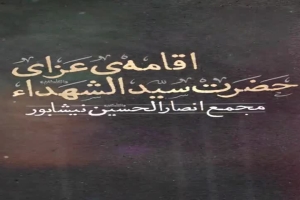 اقامه‌ی عزای
حضرت سیّدالشهداء
مجمع انصارالحسین نیشابور